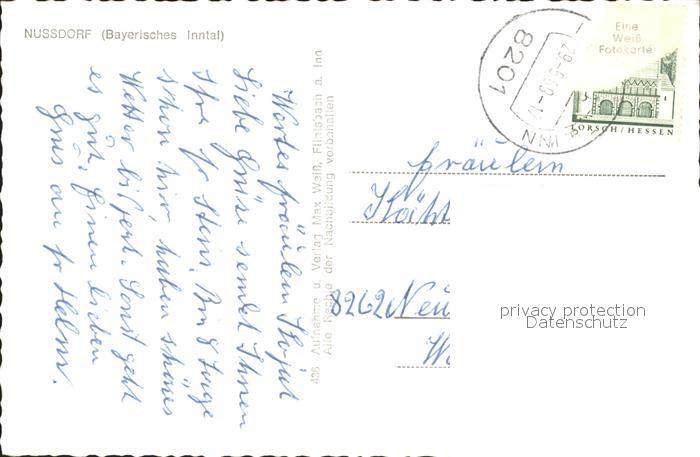 NUSSDORF (Bayerisches Inntal)
Wertes fräulein
Liebe Grüße sendet Ihnen
Ihre fr Stein. Bin 8 Tage
schon hier haben schönes
Wetter bisjert. Sonst geht
es gut. Einen lieben
Gruß an fr Helm.
436 Aufnahme u. Verlag Max Weiß, Flintsbach a. Inn
Alle Rechte der Nachbildung vorbehalten
8201
INN
Eine
Weiß
Fotokarte
LORSCH/HESSEN
fräulein
8262 Neu
privacy protection
Datenschutz